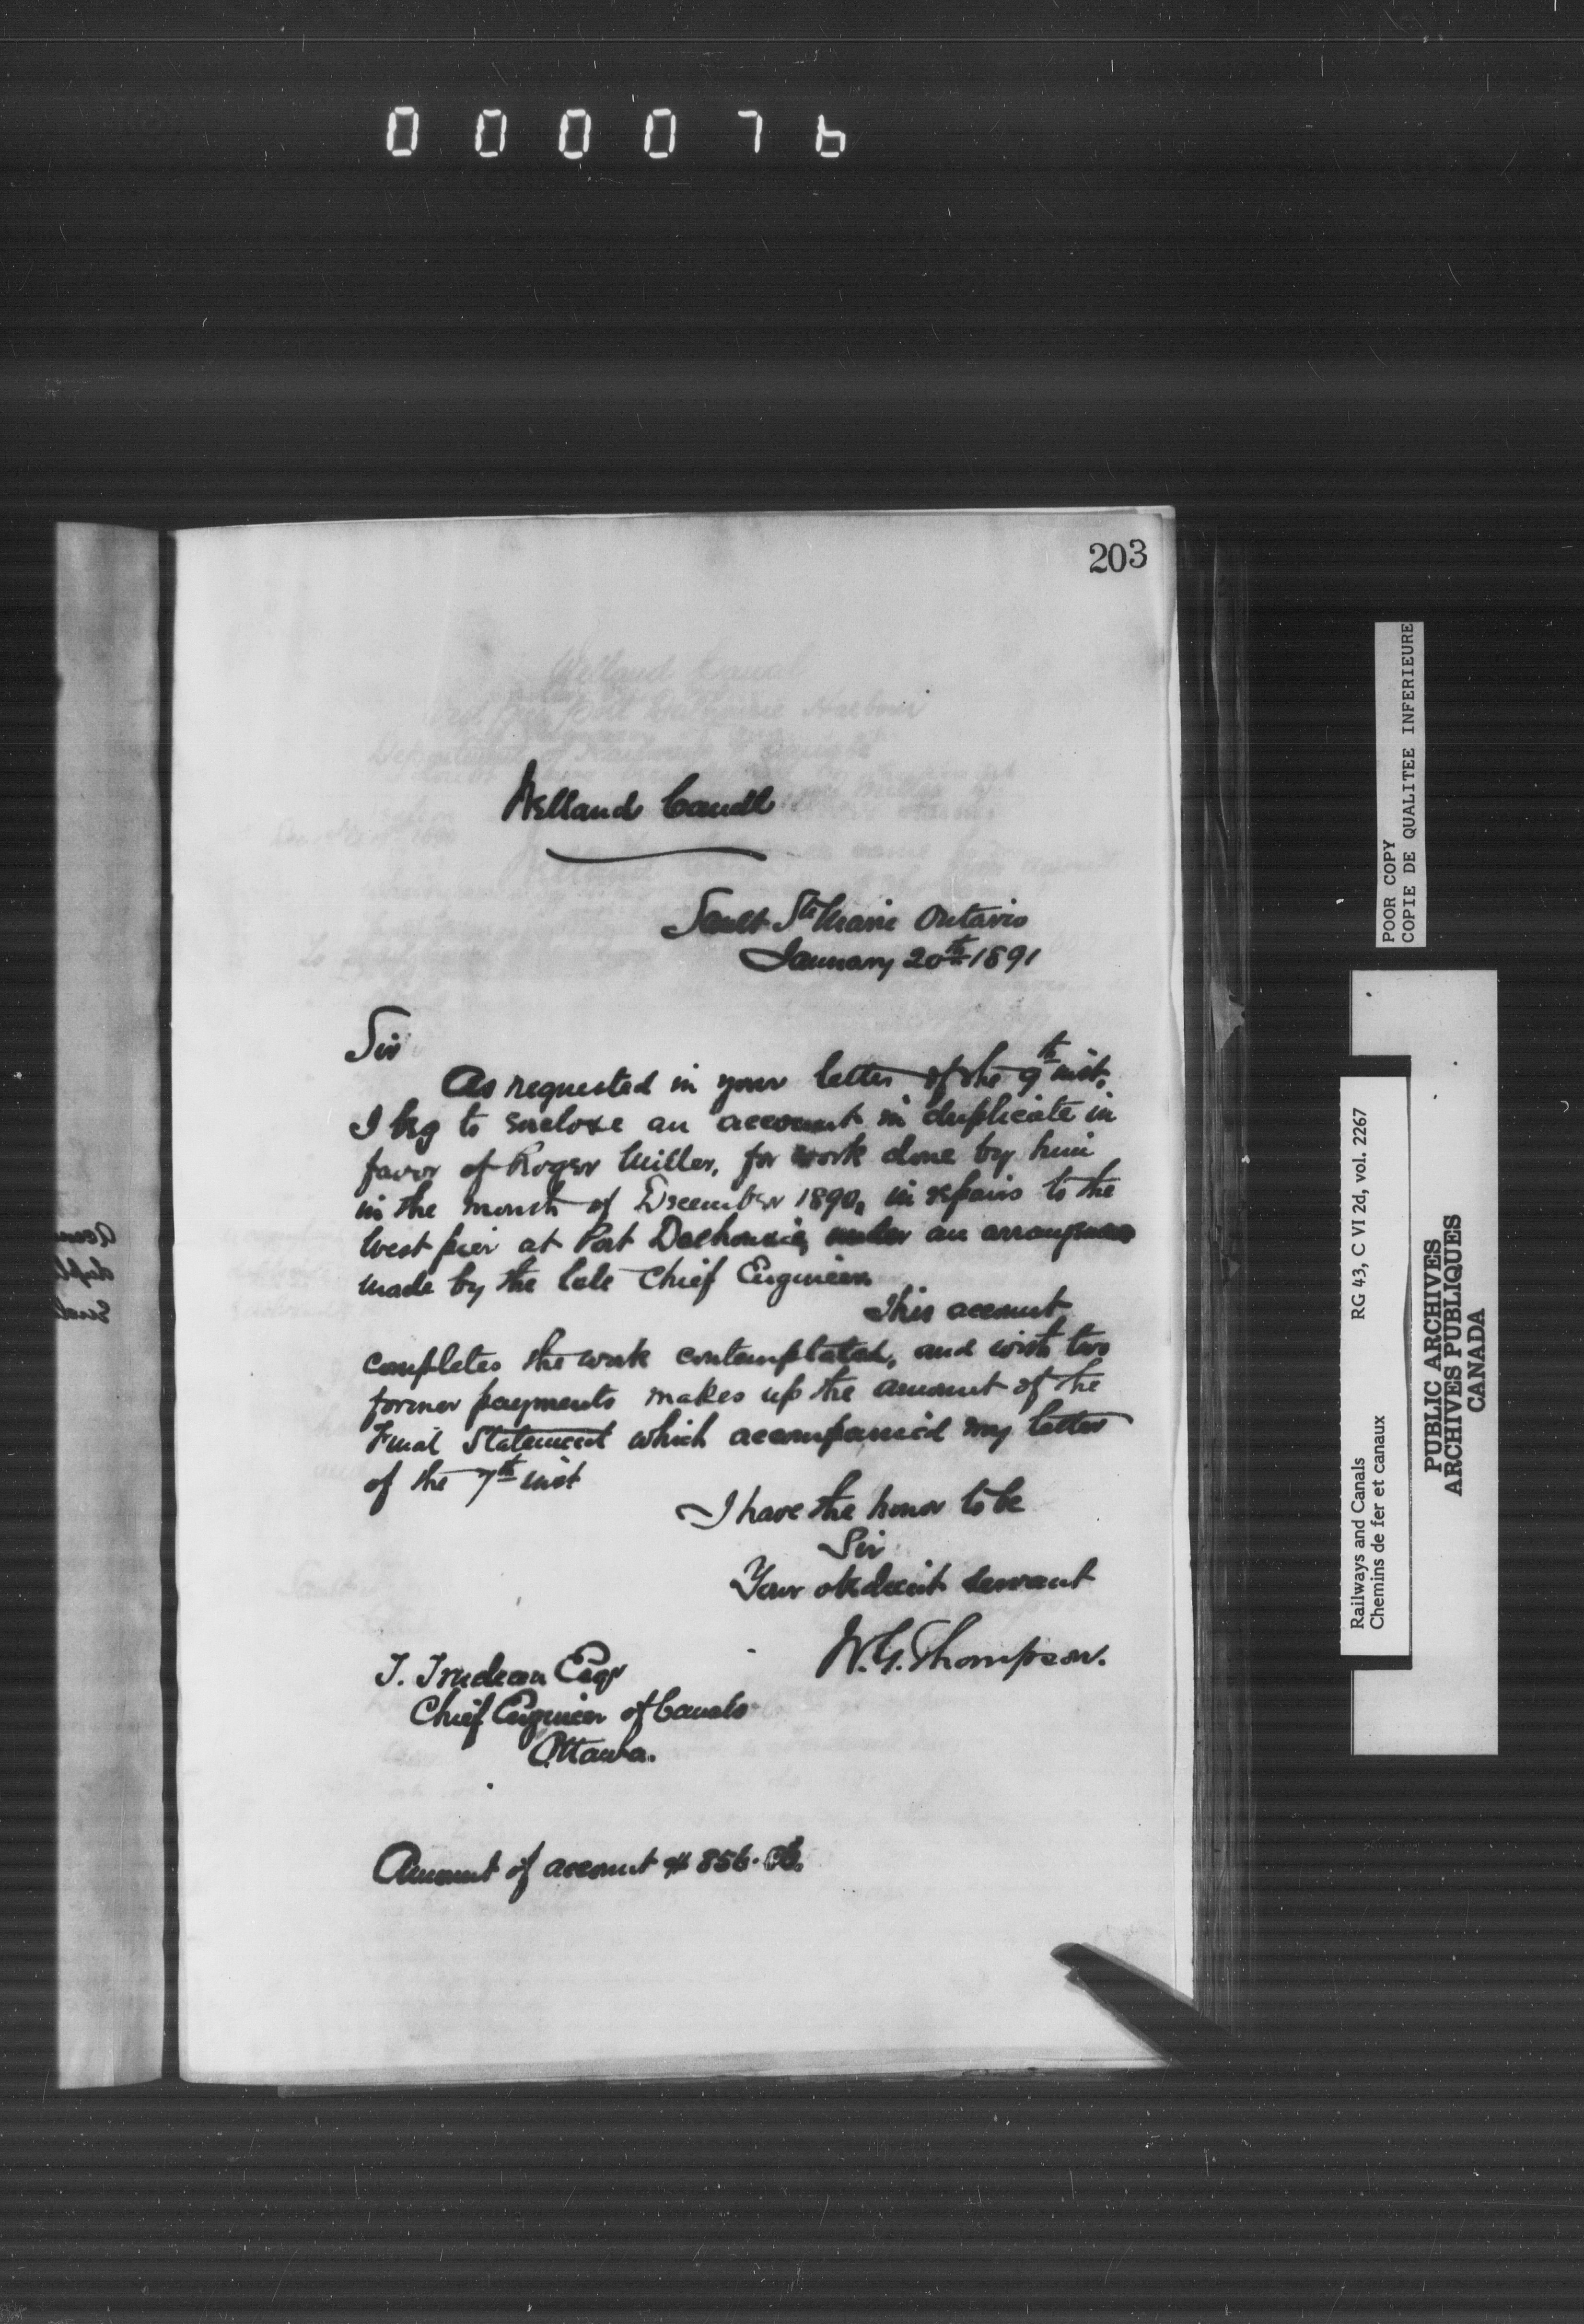 000076
203
Welland Canal
Sault Ste Marie Ontario
January 20th 1891
Sir
As requested in your letter of the 9th inst.
I beg to enclose an account in duplicate in
favor of Roger Miller, for work done by him
in the month of December 1890, in repairs to the
West pier at Port Dalhousie, under an arrangement
made by the late Chief Engineer.
This account
completes the work contemplated, and with two
former payments makes up the amount of the
Final Statement which accompanied my letter
of the 7th inst
I have the honor to be
Sir
Your obedient servant
W.G. Thompson.
T. Trudeau Esqr
Chief Engineer of Canals
Ottawa.
Amount of account $856.
POOR COPY
COPIE DE QUALITEE INFERIEURE
Railways and Canals RG 43, C VI 2d, vol. 2267
Chemins de fer et canaux
PUBLIC ARCHIVES
ARCHIVES PUBLIQUES
CANADA